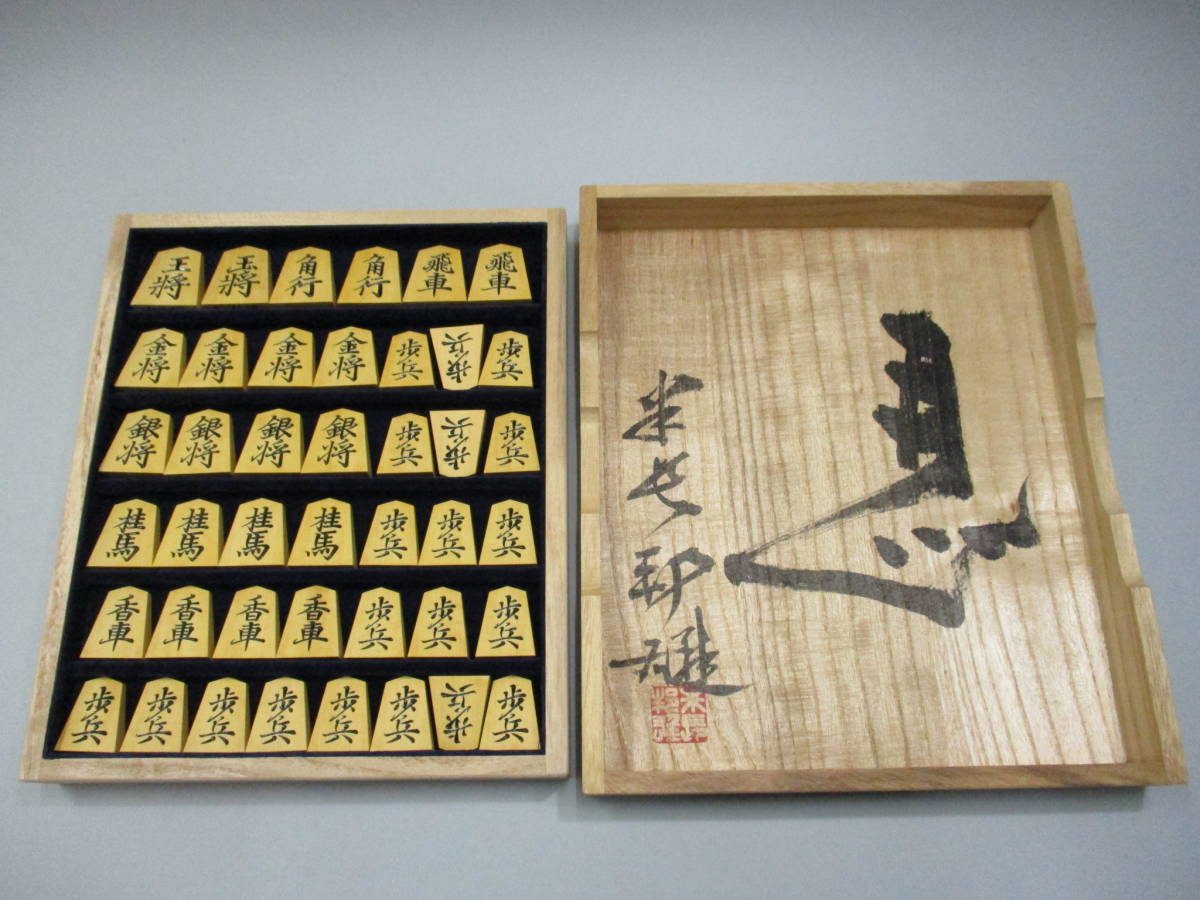 王將 玉將 角行 角行 飛車 飛車
金将 金将 金将 金将 歩兵 歩兵 歩兵
銀将 銀将 銀将 銀将 歩兵 歩兵 歩兵
桂馬 桂馬 桂馬 桂馬 歩兵 歩兵 歩兵
香車 香車 香車 香車 歩兵 歩兵 歩兵
歩兵 歩兵 歩兵 歩兵 歩兵 歩兵 歩兵 歩兵
米長邦雄